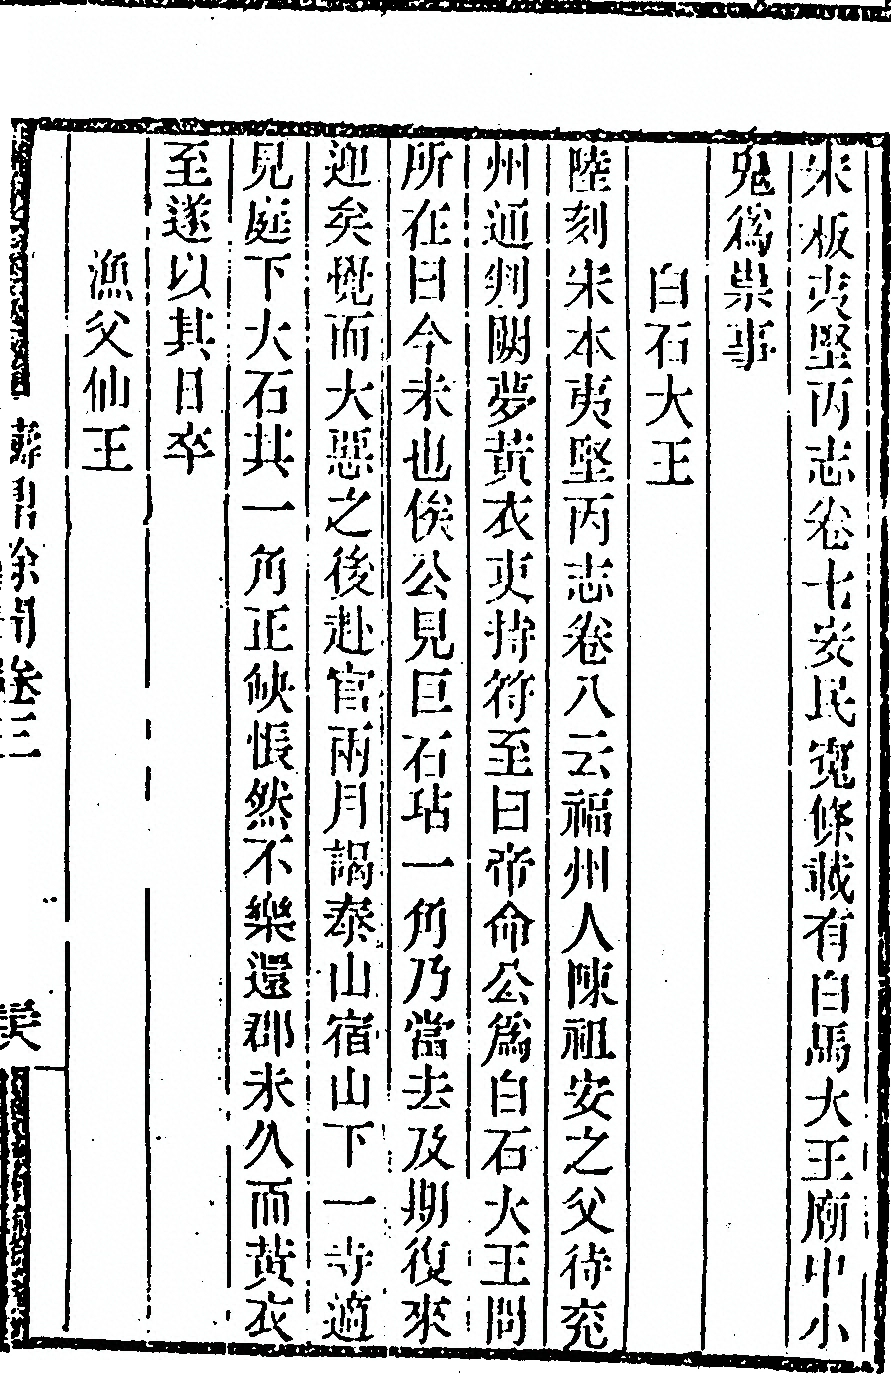 宋板夷堅丙志卷七安民寃條載有白馬大王廟中小
鬼為祟事
白石大王
陸刻宋本夷堅丙志卷八云福州人陳祖安之父待兖
州通判闕夢黃衣吏持符至曰帝命公為白石大王問
所在曰今未也俟公見巨石玷一角乃當去及期復來
迎矣覺而大惡之後赴官兩月謁泰山宿山下一寺適
見庭下大石其一角正缺悵然不樂還郡未久而黃衣
至遂以其日卒
漁父仙王
卷三